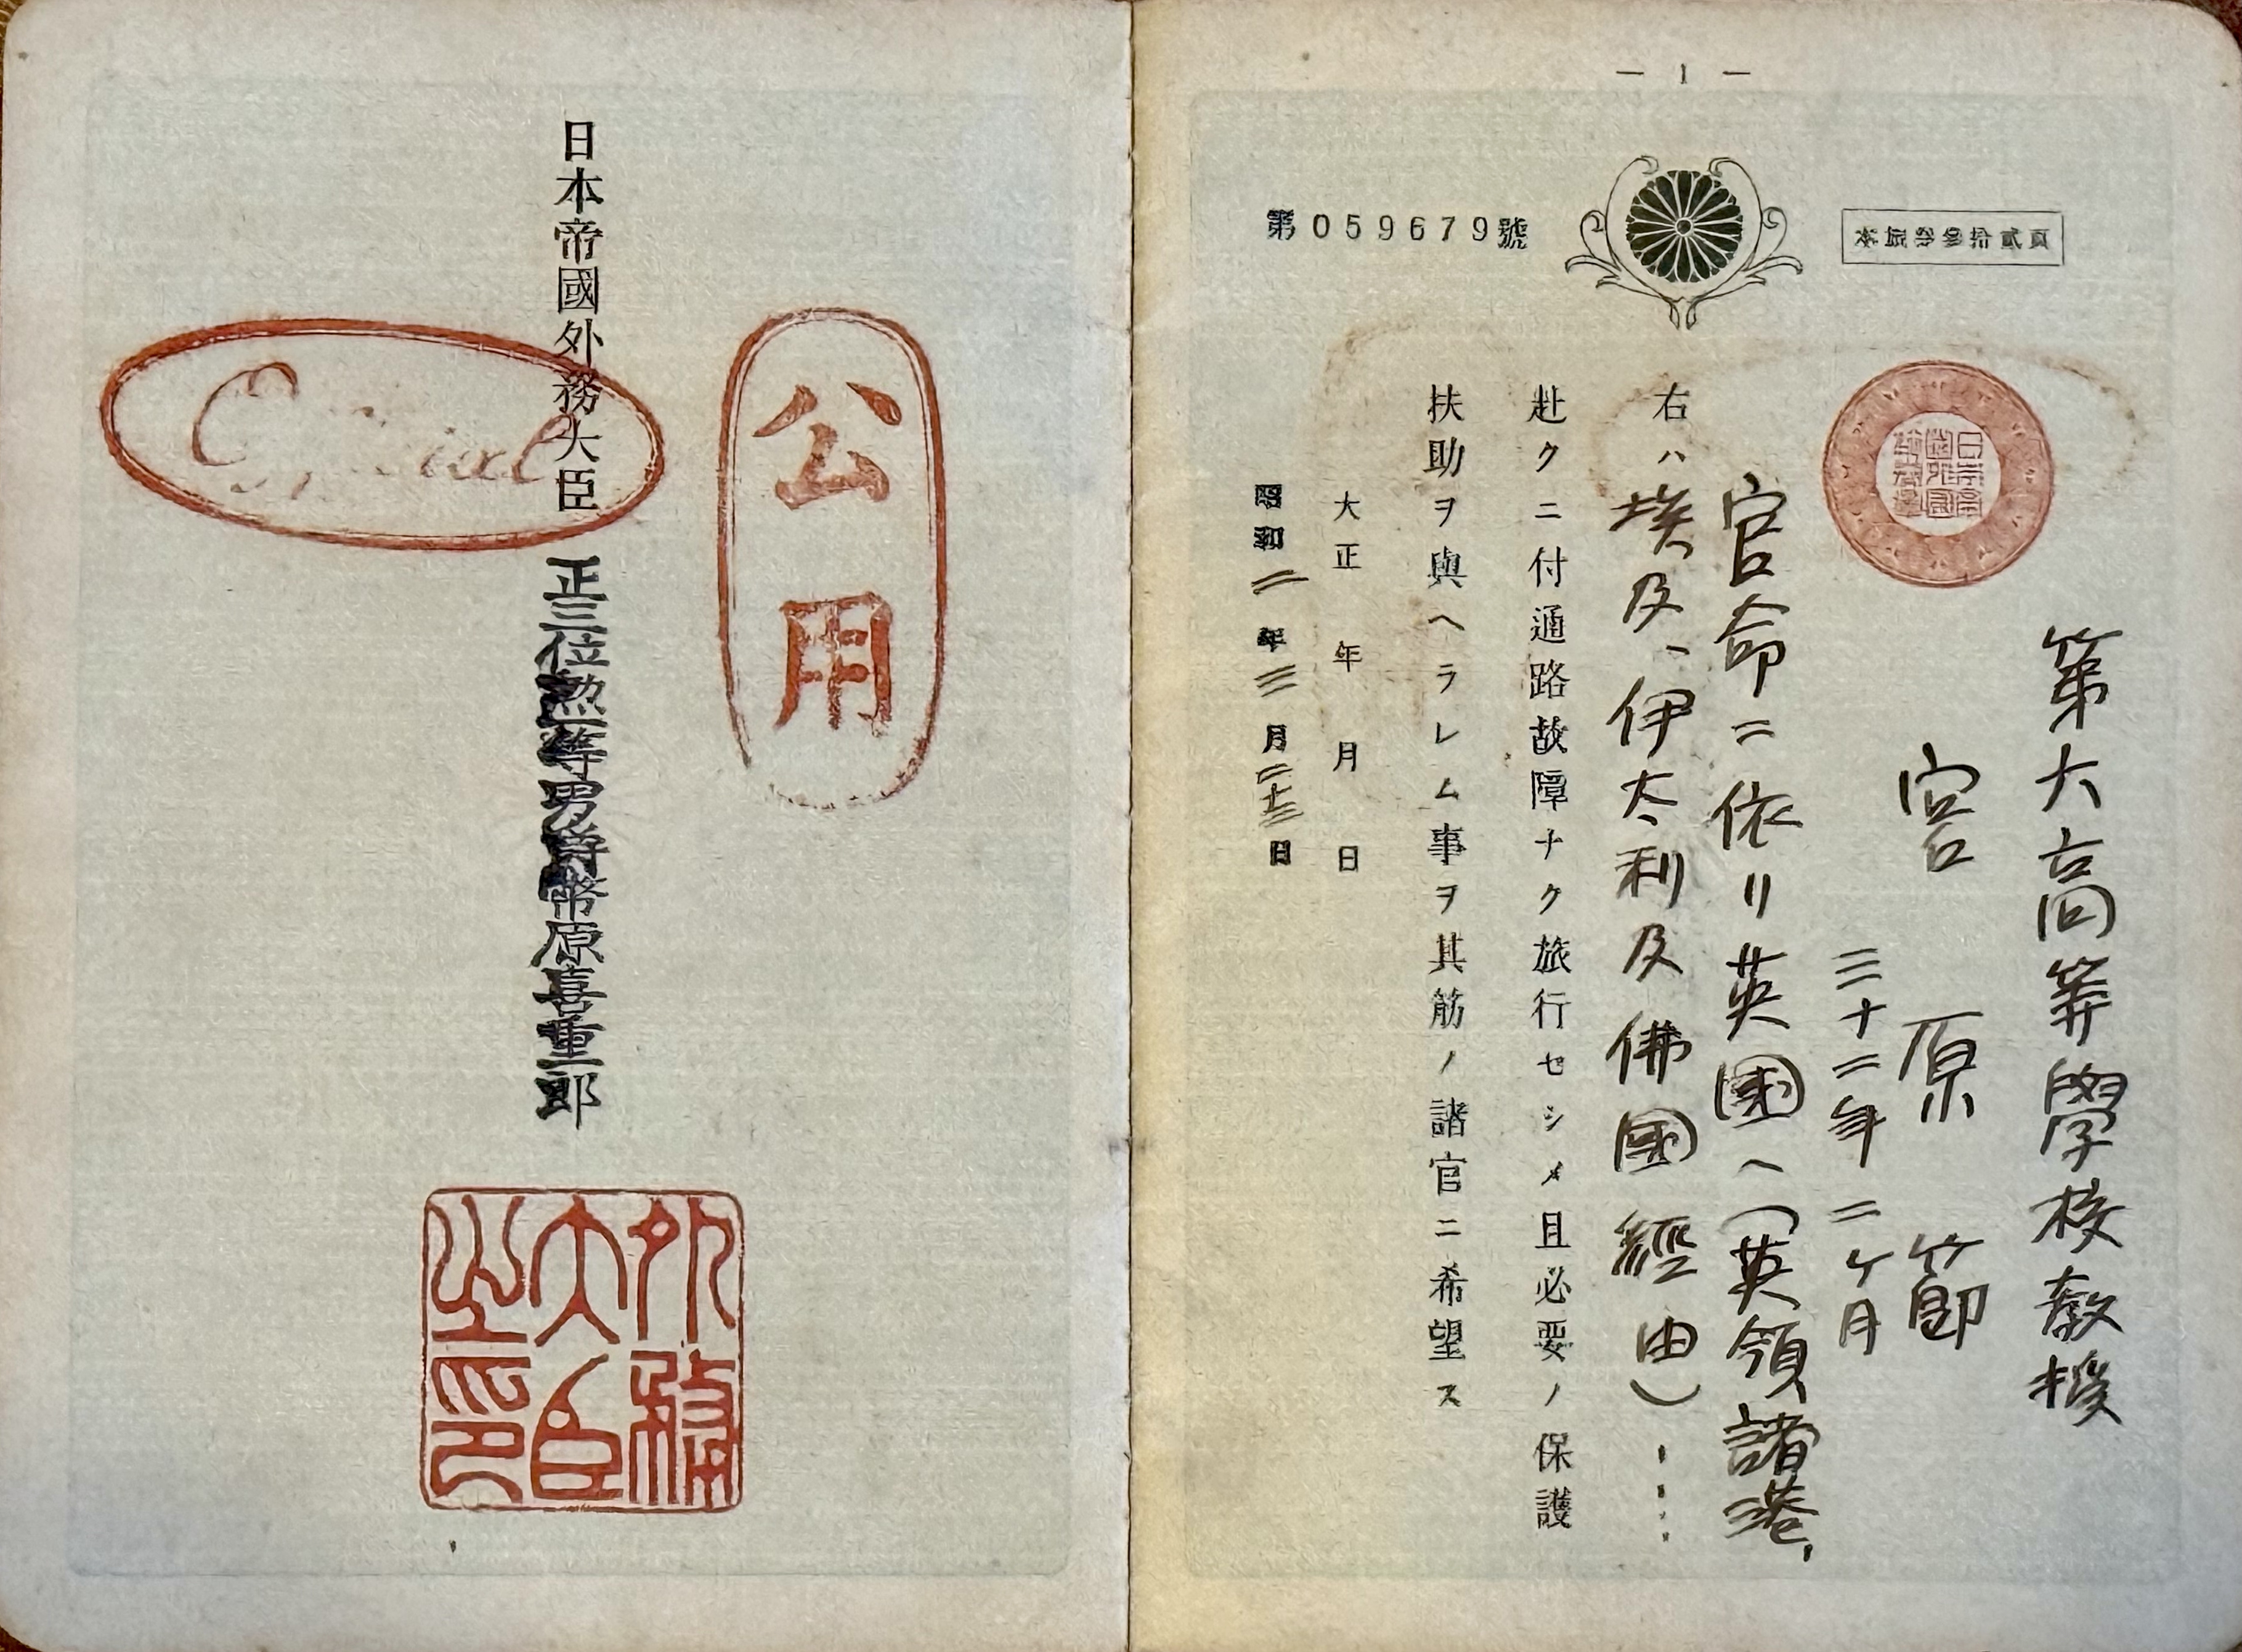 — 1 —
第059679號
本旅券參拾貳頁
第六高等學校教授
宮原節
三十二年二ヶ月
官命ニ依リ英國ヘ(英領諸港、
右ハ埃及、伊太利及佛國經由)
赴クニ付通路故障ナク旅行セシメ且必要ノ保護
扶助ヲ與ヘラレム事ヲ其筋ノ諸官ニ希望ス
大正 年 月 日
昭和二年三月二十三日
公用
日本帝國外務大臣 正三位勲一等男爵幣原喜重郎
Official
外務大臣之印